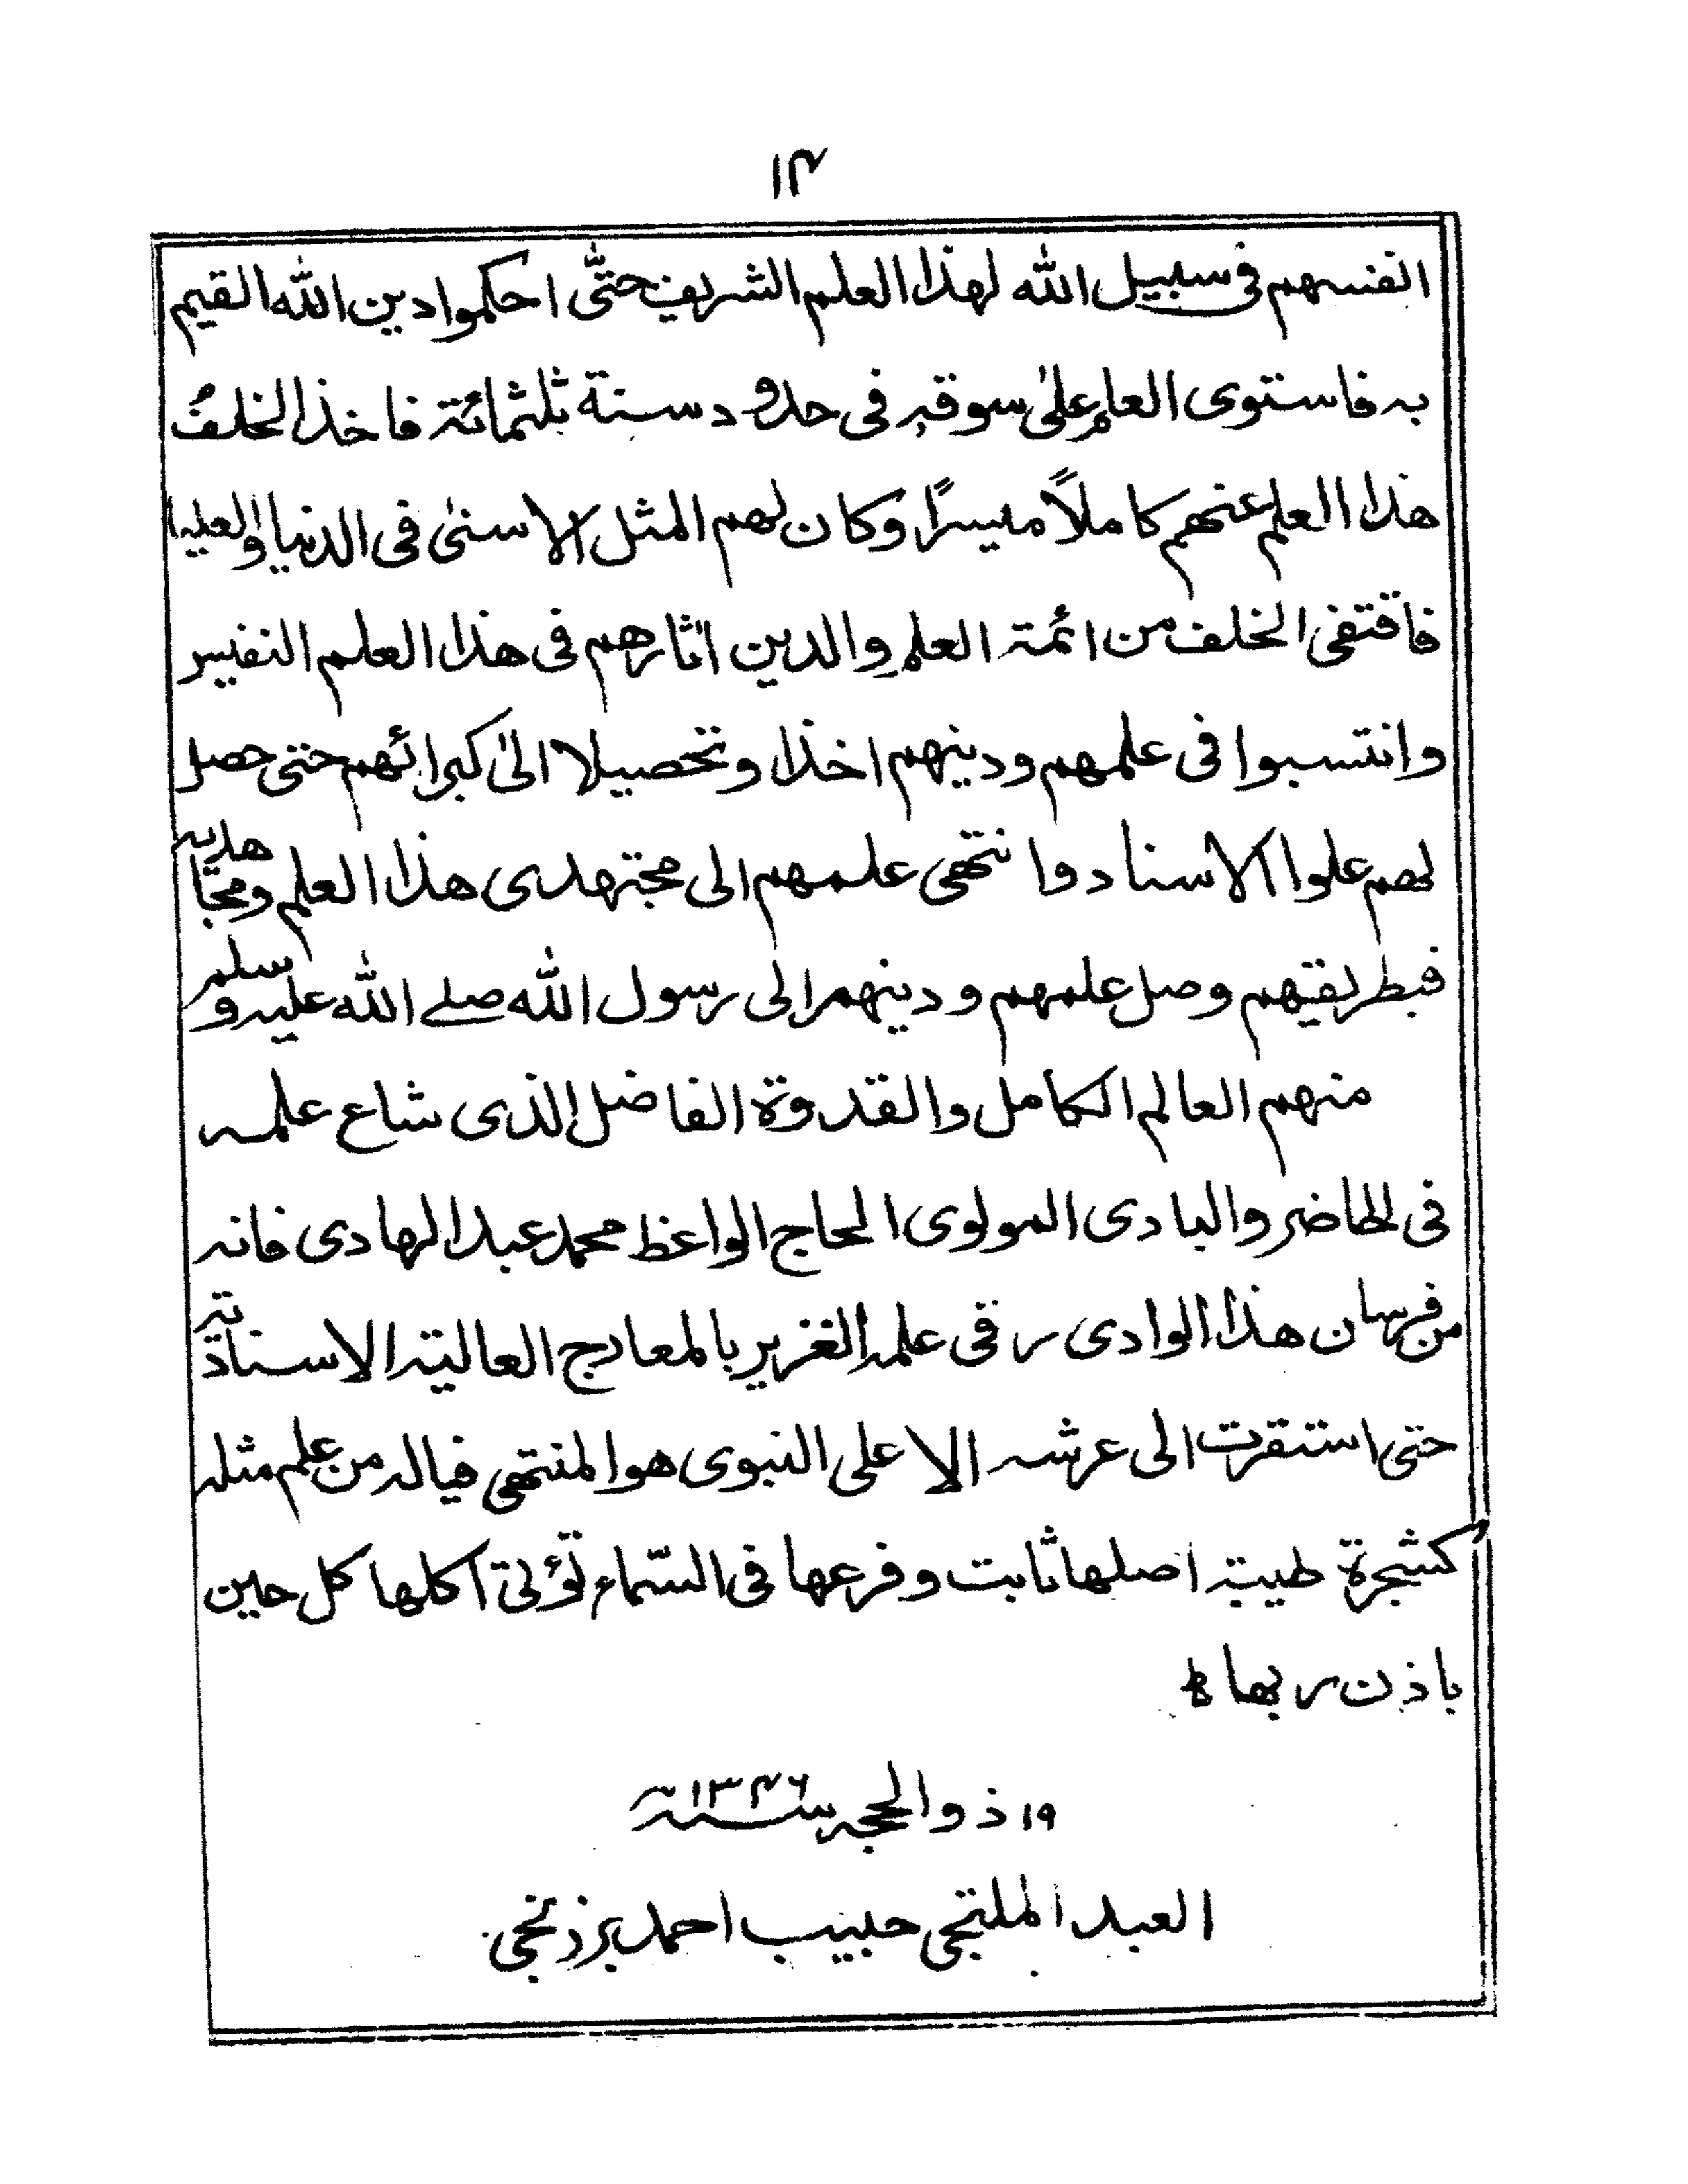 ۱۴
انفسهم فی سبیل الله لهذا العلم الشریف حتّٰی احکموا دین الله القیم
به فاستوی العلم علیٰ سوقه فی حدود سنة ثلثمائة فاخذ الخلفُ
هذا العلم عنهم کاملاً میسرًا وکان لهم المثل الاسنیٰ فی الدنیا والعلیا
فاقتفی الخلف من ائمة العلم والدین اٰثارهم فی هذا العلم النفیس
وانتسبوا فی علمهم ودینهم اخذا وتحصیلا الیٰ کبرائهم حتی حصل
لهم علوا الاسناد وانتهی علمهم الی مجتهدی هذا العلم ومجاهدیه
فبطریقهم وصل علمهم ودینهم الی رسول الله صلے الله علیه وسلم
منهم العالم الکامل والقدوة الفاضل الذی شاع علمه
فی الحاضر والبادی المولوی الحاج الواعظ محمد عبد الهادی فانه
من فرسان هذا الوادی رقی علمه الغزیر بالمعارج العالیة الاسنادیة
حتی استقرت الی عرشه الاعلی النبوی هو المنتهی فیاله من علم مثله
کشجرة طیبة اصلها ثابت وفرعها فی السّماء تؤتی اکلها کل حین
باذن ربها ط
۱۹ ذوالحجه سنه ۱۳۴۶
العبد الملتجی حبیب احمد برزنجی